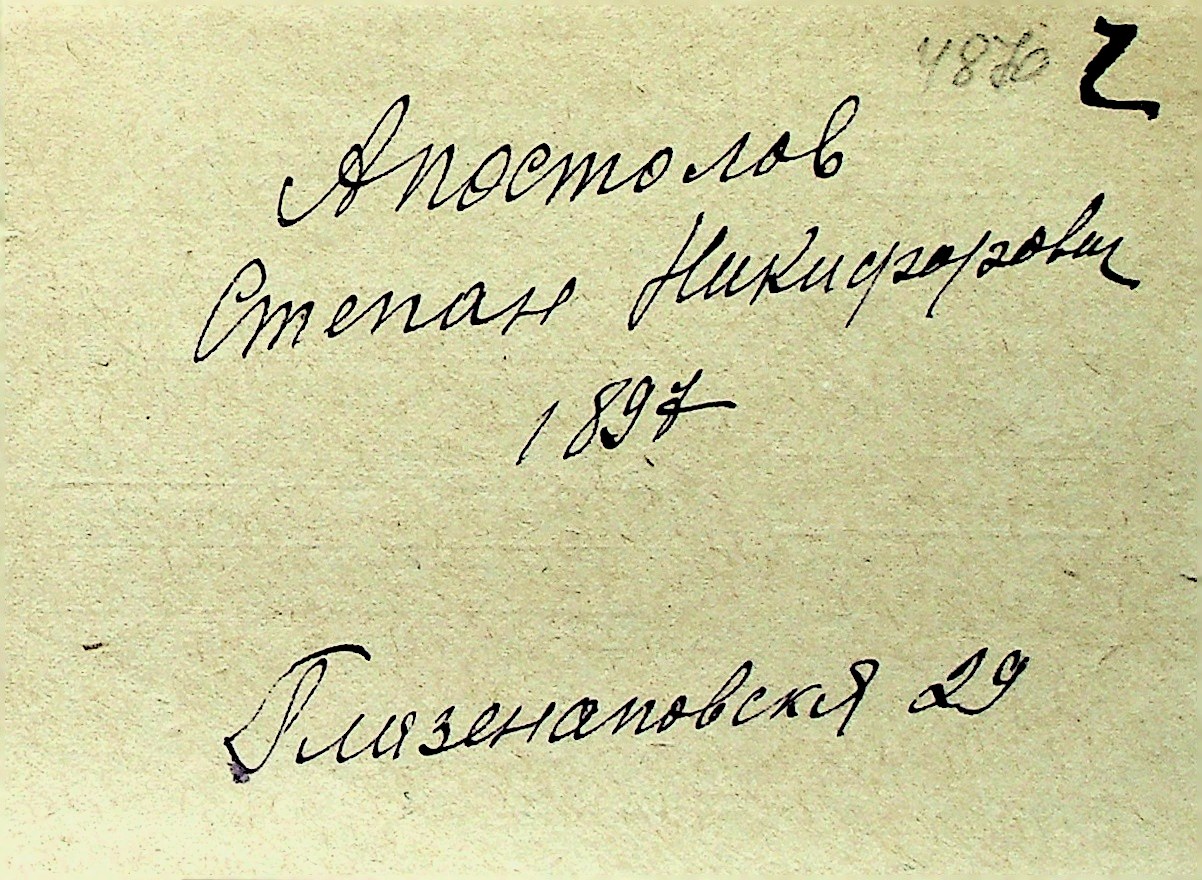 4876 2
Апостолов
Степан Никифорович
1897
Глизенаповскя 29